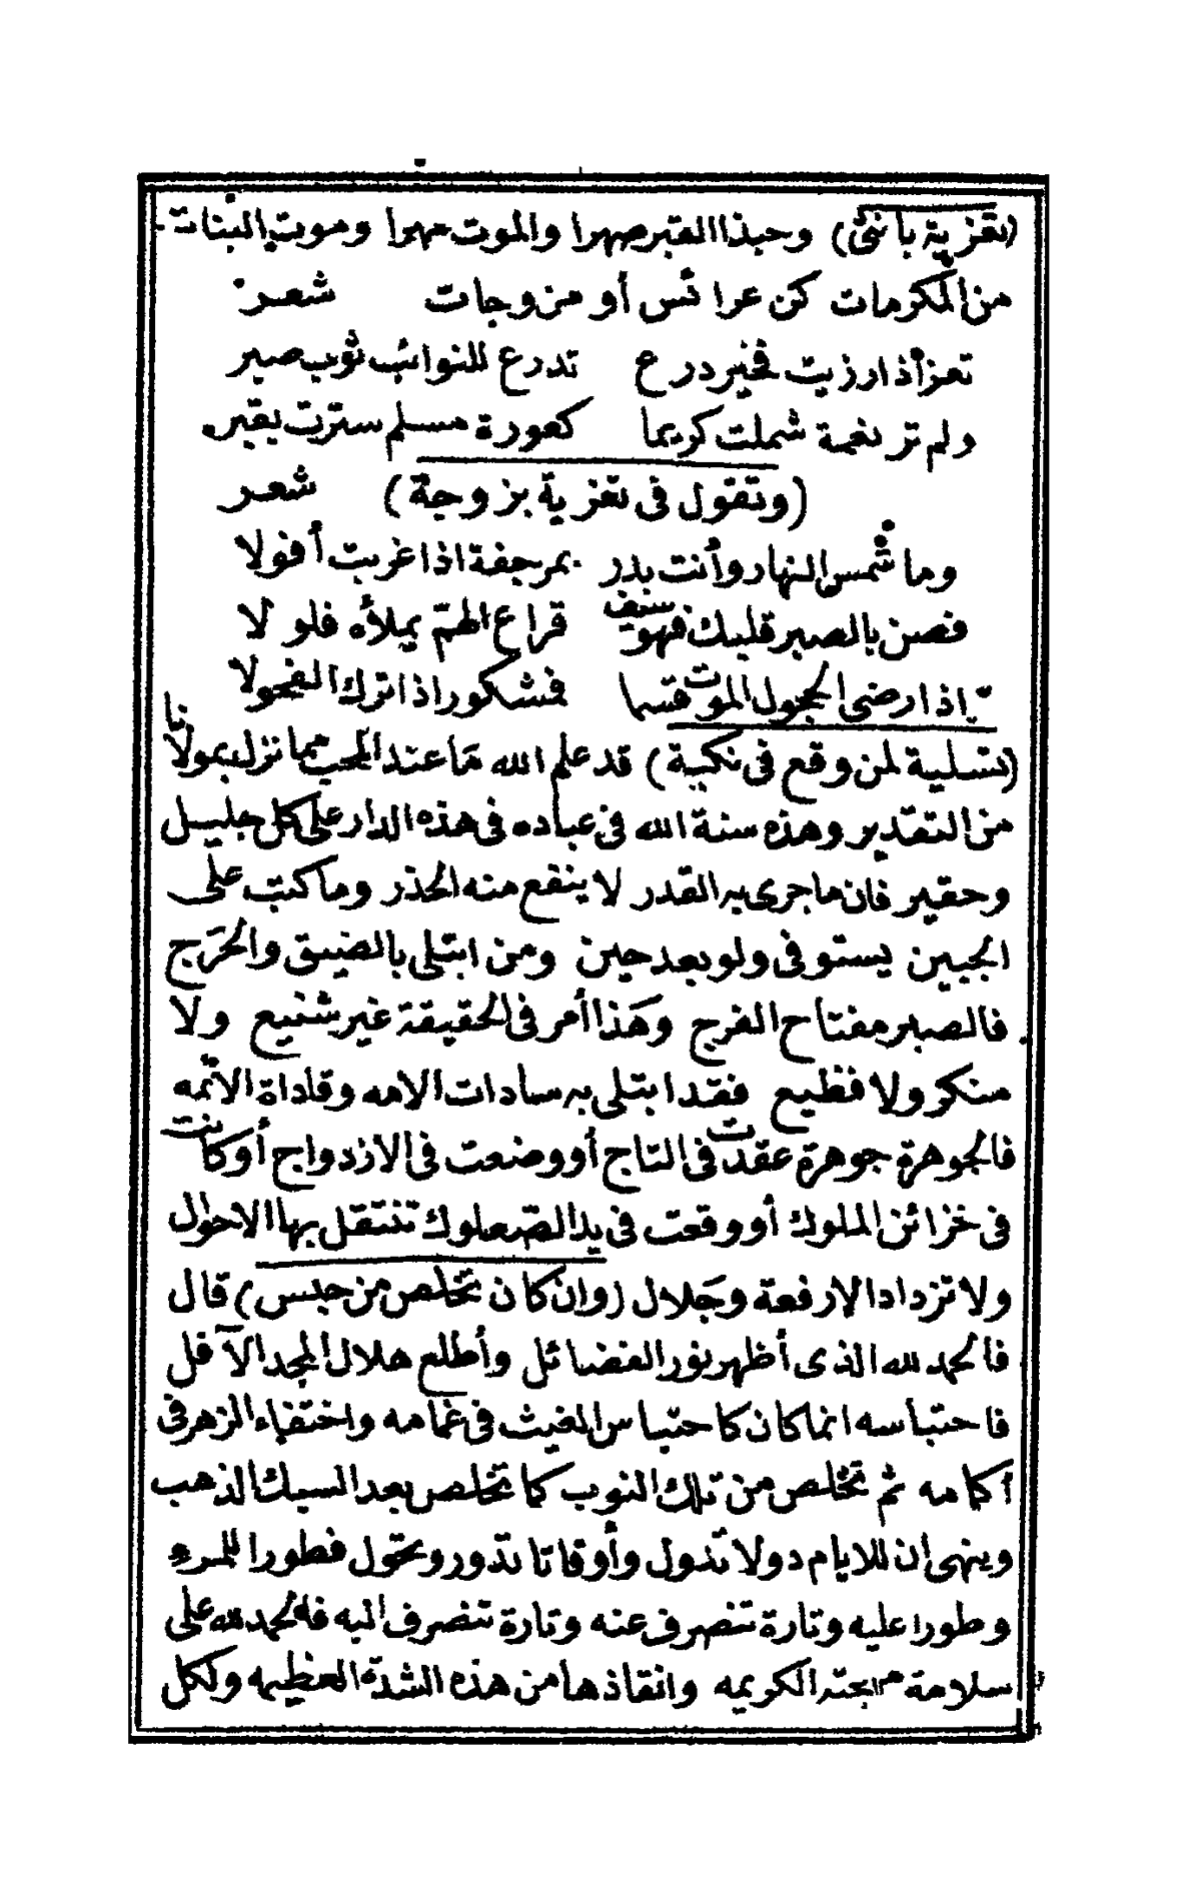 (تعزية بأنثى) وحبذا القبر صهرا والموت مهرا وموت البنات
من المكرمات كن عرائس أو مزوجات شعر
تعز أذا رزيت فخير درع تدرع للنوائب ثوب صبر
ولم تر نعمة شملت كريما كعورة مسلم سترت بقبر
(وتقول فى تعزية بزوجة) شعر
وما شمس النهار وأنت بدر بمرجفة اذا غربت أفولا
فصن بالصبر قلبك فهو سيف قراع الهمّ يملأه فلولا
اذا رضى الجحول الموت قسما فمشكور اذا ترك الفحولا
(تسلية لمن وقع فى نكبة) قد علم الله مَا عند المحب مما نزل بمولانا
من التقدير وهذه سنة الله فى عباده فى هذه الدار على كل جليل
وحقير فان ما جرى به القدر لا ينفع منه الحذر وما كتب على
الجبين يستوفى ولو بعد حين ومن ابتلى بالضيق والحَرَج
فالصبر مفتاح الفرج وهَذا أمر فى الحقيقة غير شنيع ولا
منكر ولا فظيع فقد ابتلى به سادات الامه وقاداة الائمه
فالجوهرة جوهرة عقدت فى التاج أو وضعت فى الازدواج أو كانت
فى خزائن الملوك أو وقعت فى يد الصعلوك تنتقل بها الاحوال
ولا تزداد الا رفعة وجَلال (وان كان تخلص من حبس) قال
فالحمد لله الذى أظهر نور الفضائل وأطلع هلال المجد الآفل
فاحتباسه انما كان كاحتباس الغيث فى غمامه واختفاء الزهر فى
أكمامه ثم تخلص من تلك النوب كما تخلص بعد السبك الذهب
وينهى ان للايام دولا تدول وأوقاتا تدور وتحول فطورا للمرء
وطورا عليه وتارة تنصرف عنه وتارة تنصرف اليه فالحمد لله على
سلامة مهجته الكريمه وانقاذها من هذه الشدة العظيمه ولكل